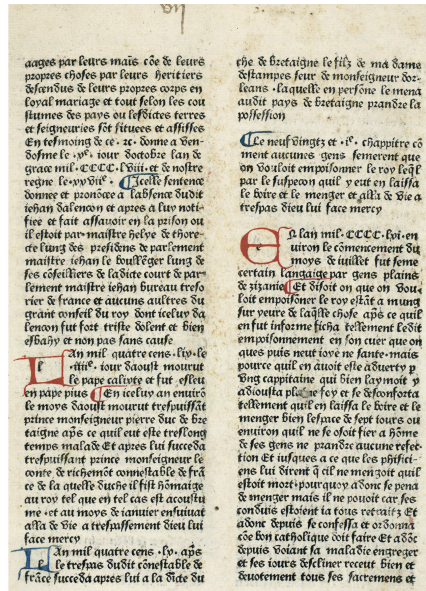 aages par leurs maīs cōe de leurs
propres choses par leurs heritiers
descendus de leurs propres corps en
loyal mariage et tout selon les cou
stumes des pays ou lesdictes terres
et seigneuries sōt situees et assises
En tesmoing de ce ⁊c donne a ven-
dosme le xe iour doctobre lan de
grace mil CCCC lviii et de nostre
regne le xxviie Icelle sentence
donnee et pronōcee a labsence dudit
iehan dalencon et apres a luy noti-
fiee et fait assauoir en la prison ou
il estoit par maistre helye de thore-
cte lung des presidens de parlement
maistre iehan le boullēger lung de
ses cōseilliers de ladicte court de par-
lement maistre iehan bureau treso
rier de france et aucuns aultres du
grant conseil du roy dont iceluy da
lencon fut fort triste dolent et bien
esbahy et non pas sans cause
Lan mil quatre cens liy le
iour daoust mourut
le pape calixte et fut esleu
en pape pius En iceluy an enuirō
le moys daoust mourut trespuissāt
prince monseigneur pierre duc de bre
taigne aps̄ ce quil eut este treslong
temps malade Et apres lui succeda
trespuissant prince monseigneur le
conte de richemōt connestable de frā
ce de la quelle duche il fist hōmaige
au roy tel que en tel cas est acoustu
me et au moys de ianuier ensuiuāt
alla de vie a trespassement dieu lui
face mercy
Lan mil quatre cens ly aps̄
le trespas dudit cōnestable de
frāce succeda apres lui a la dicte du
che de bretaigne le filz de ma dame
destampes seur de monseigneur dor-
leans laquelle en persōne le mena
audit pays de bretaigne prandre la
possession
Le neuf vingtz et ie chappitre cō
ment aucunes gens semerent que
on vouloit empoisonner le roy leq̄l
par le suspecon quil y eut en laissa
le boire et le menger et alla de vie a
trespas dieu lui face mercy
En lan mil CCCC lxi en
uiron le cōmencement du
moys de iuillet fut seme
certain langaige par gens plains
de zizanie Et disoit on que on vou
loit empoisonner le roy estāt a mung
sur yeure de laq̄lle chose aps̄ ce quil
en fut informe ficha tellement ledit
empoisonnement en son cuer que on
ques puis neut ioye ne sante mais
pource quil en auoit este aduerty p
vng cappitaine qui bien laymoit y
adiousta plaine foy et se desconforta
tellement quil en laissa le boire et le
menger bien lespace de sept iours ou
enuiron quil ne se osoit fier a hōme
de ses gens ne prandre aucune refec
tion Et iusques a ce que les phisici-
ens lui dirent q̄ cil ne mengoit quil
estoit mort pourquoy adonc se pena
de menger mais il ne pouoit car ses
conduis estoient ia tous retraitz Et
adonc depuis se confessa et ordonna
cōe bon catholique doit faire Et adōc
depuis voiant sa maladie engreger
et ses iours descliner receut bien et
deuotement tous ses sacremens et